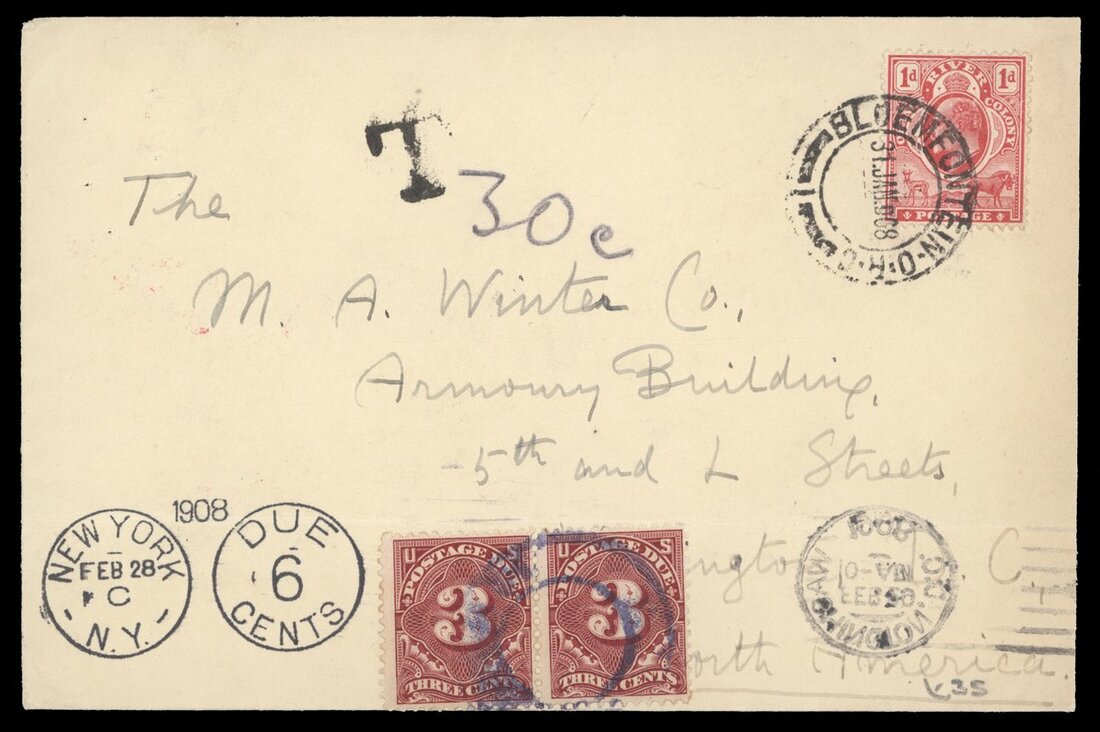 1d 1d
RIVER COLONY
POSTAGE
BLOEMFONTEIN·O·R·C
31 JAN 1908
T
30c
The
M. A. Winter Co.,
Armoury Building,
5th and L Streets,
C
North America.
1908
NEW YORK
FEB 28
C
N.Y.
DUE
6
CENTS
U S
POSTAGE DUE
3
THREE CENTS
U S
POSTAGE DUE
3
THREE CENTS
WASHINGTON, D.C.
10-AM
1908
35